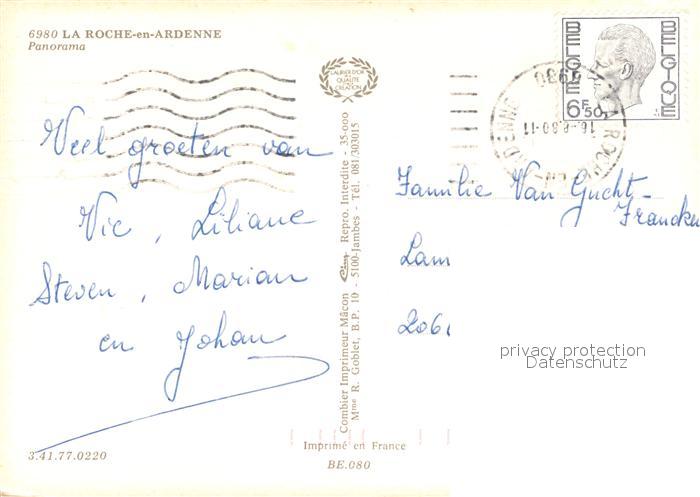 6980 LA ROCHE-en-ARDENNE
Panorama
LAURIER D'OR
DE LA
QUALITÉ
CRÉATION
BELGIE
BELGIQUE
6F50
6980
16-8.80-11
Veel groeten van
Vic, Liliane
Steven, Marian
en Johan
Combier Imprimeur Mâcon Cim Repro. Interdite - 35-000
Mme R. Goblet, B.P. 10 - 5100-Jambes - Tél. 081/303015
Familie Van Gucht-
Francken
Lam
206
privacy protection
Datenschutz
Imprimé en France
3.41.77.0220
BE.080